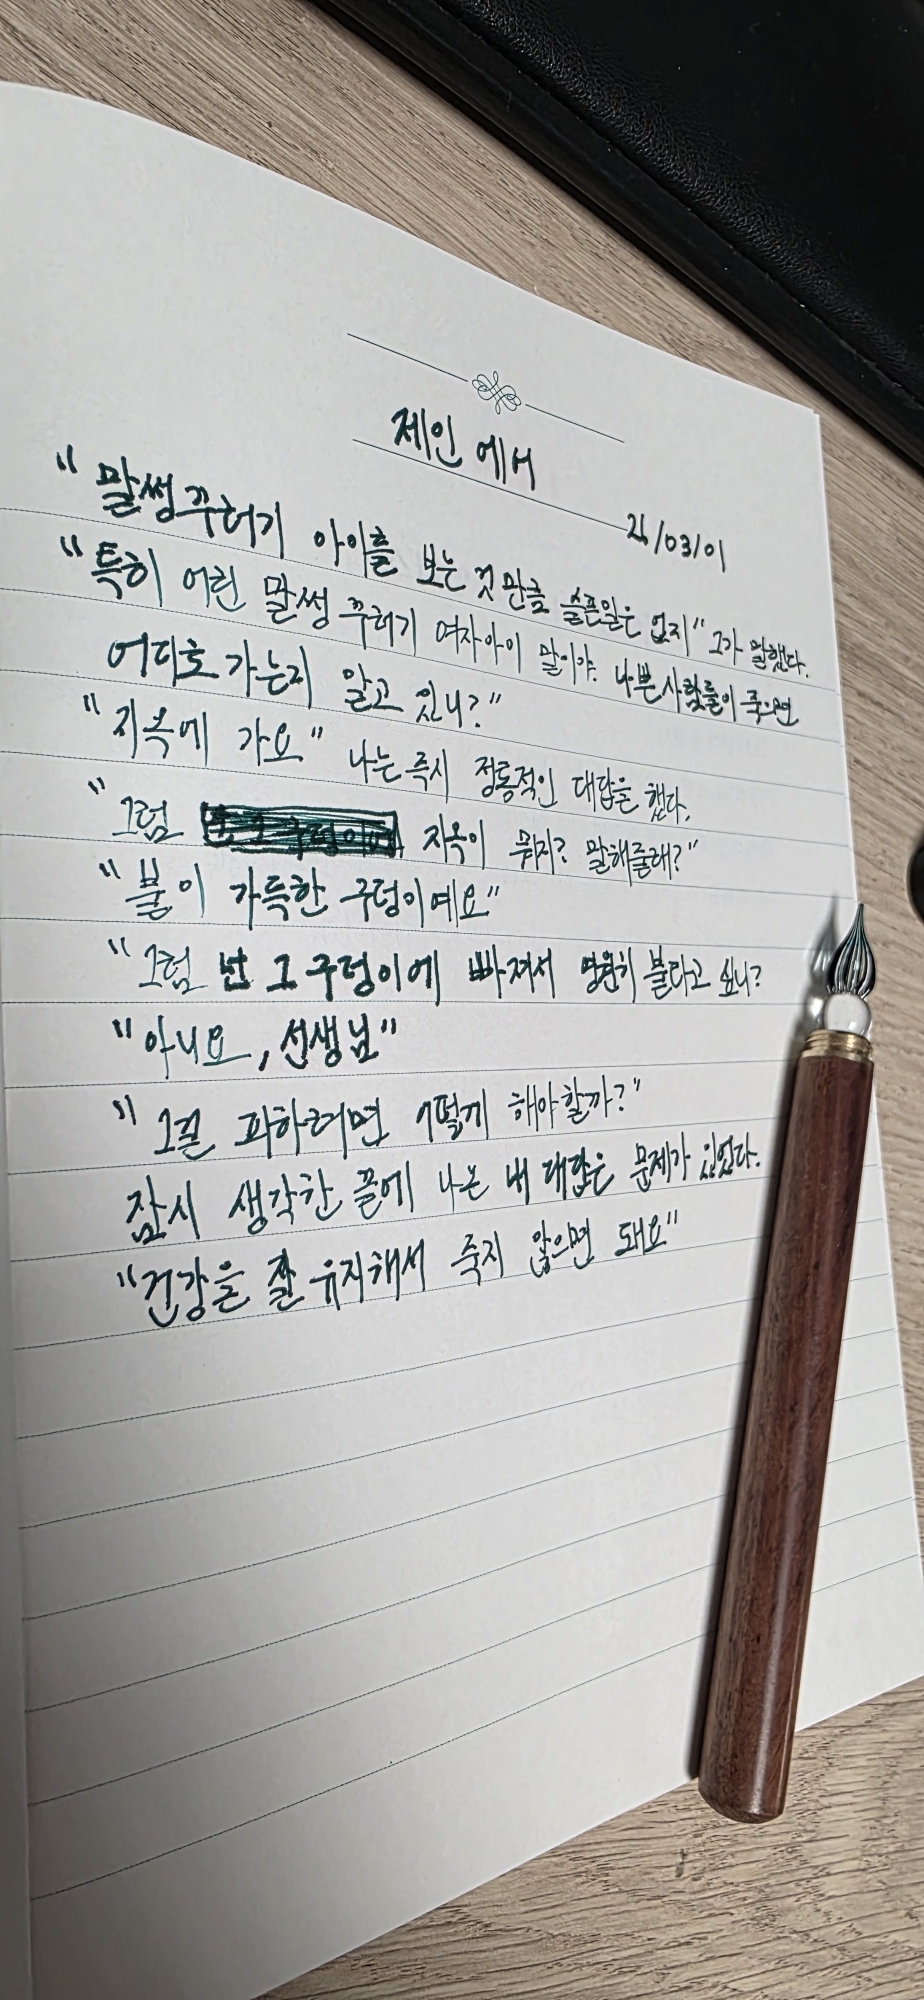 제인 에어
/03/01
"말썽꾸러기 아이를 보는 것 만큼 슬픈일은 없지" 그가 말했다.
"특히 어린 말썽 꾸러기 여자아이 말이야. 나쁜사람들이 죽으면
어디로 가는지 알고 있니?"
"지옥에 가요" 나는 즉시 정통적인 대답을 했다.
"그럼 지옥이 뭐지? 말해줄래?"
"불이 가득한 구덩이예요"
"그럼 넌 그 구덩이에 빠져서 영원히 불타고 싶니?
"아니요, 선생님"
"그걸 피하려면 어떻게 해야할까?"
잠시 생각한 끝에 나온 내 대답은 문제가 있었다.
"건강을 잘 유지해서 죽지 않으면 돼요"